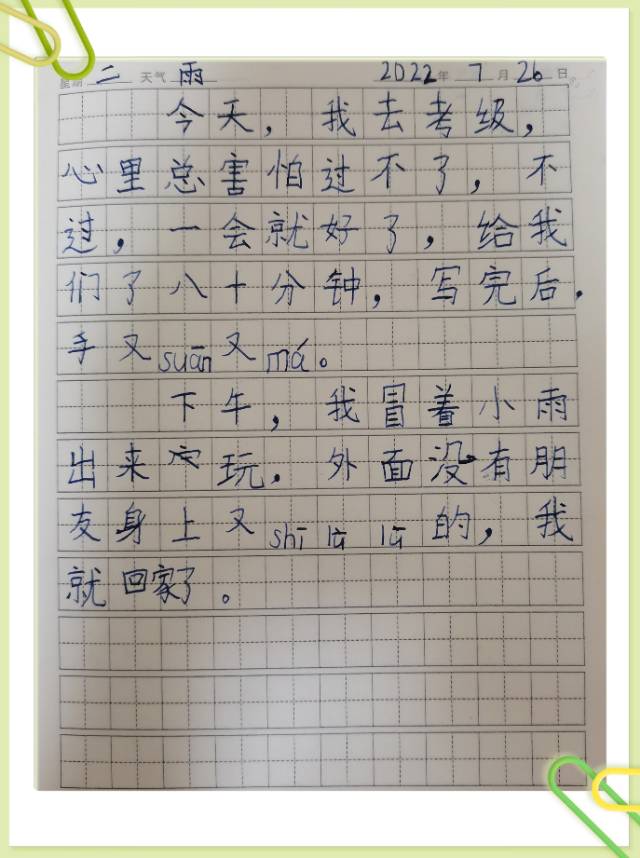 星期 二 天气 雨 2022年 7月 26日
今天，我去考级，
心里总害怕过不了，不
过，一会就好了，给我
们了八十分钟，写完后，
手又suān又má。
下午，我冒着小雨
出来玩，外面没有朋
友身上又shī lū lū的，我
就回家了。